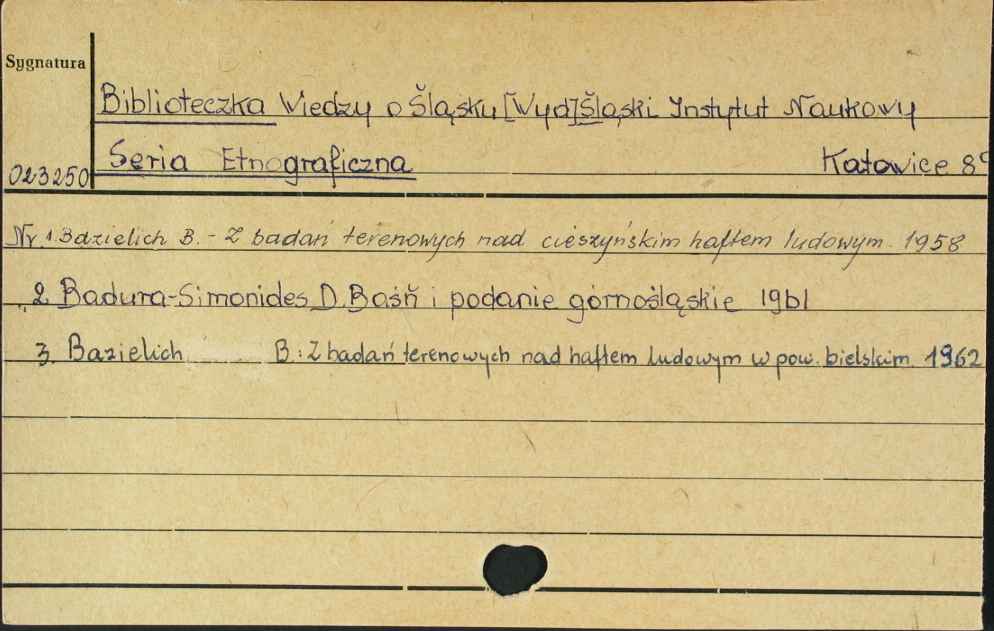 Sygnatura
Biblioteczka Wiedzy o Śląsku [Wyd] Śląski Instytut Naukowy
023250 Seria Etnograficzna Katowice 8°
Nr 1. Bdzielich B. - Z badań terenowych nad cieszyńskim haftem ludowym. 1958
2. Badura-Simonides D. Baśń i podanie górnośląskie 1961
3. Bazielich B: Z badań terenowych nad haftem ludowym w pow. bielskim. 1962